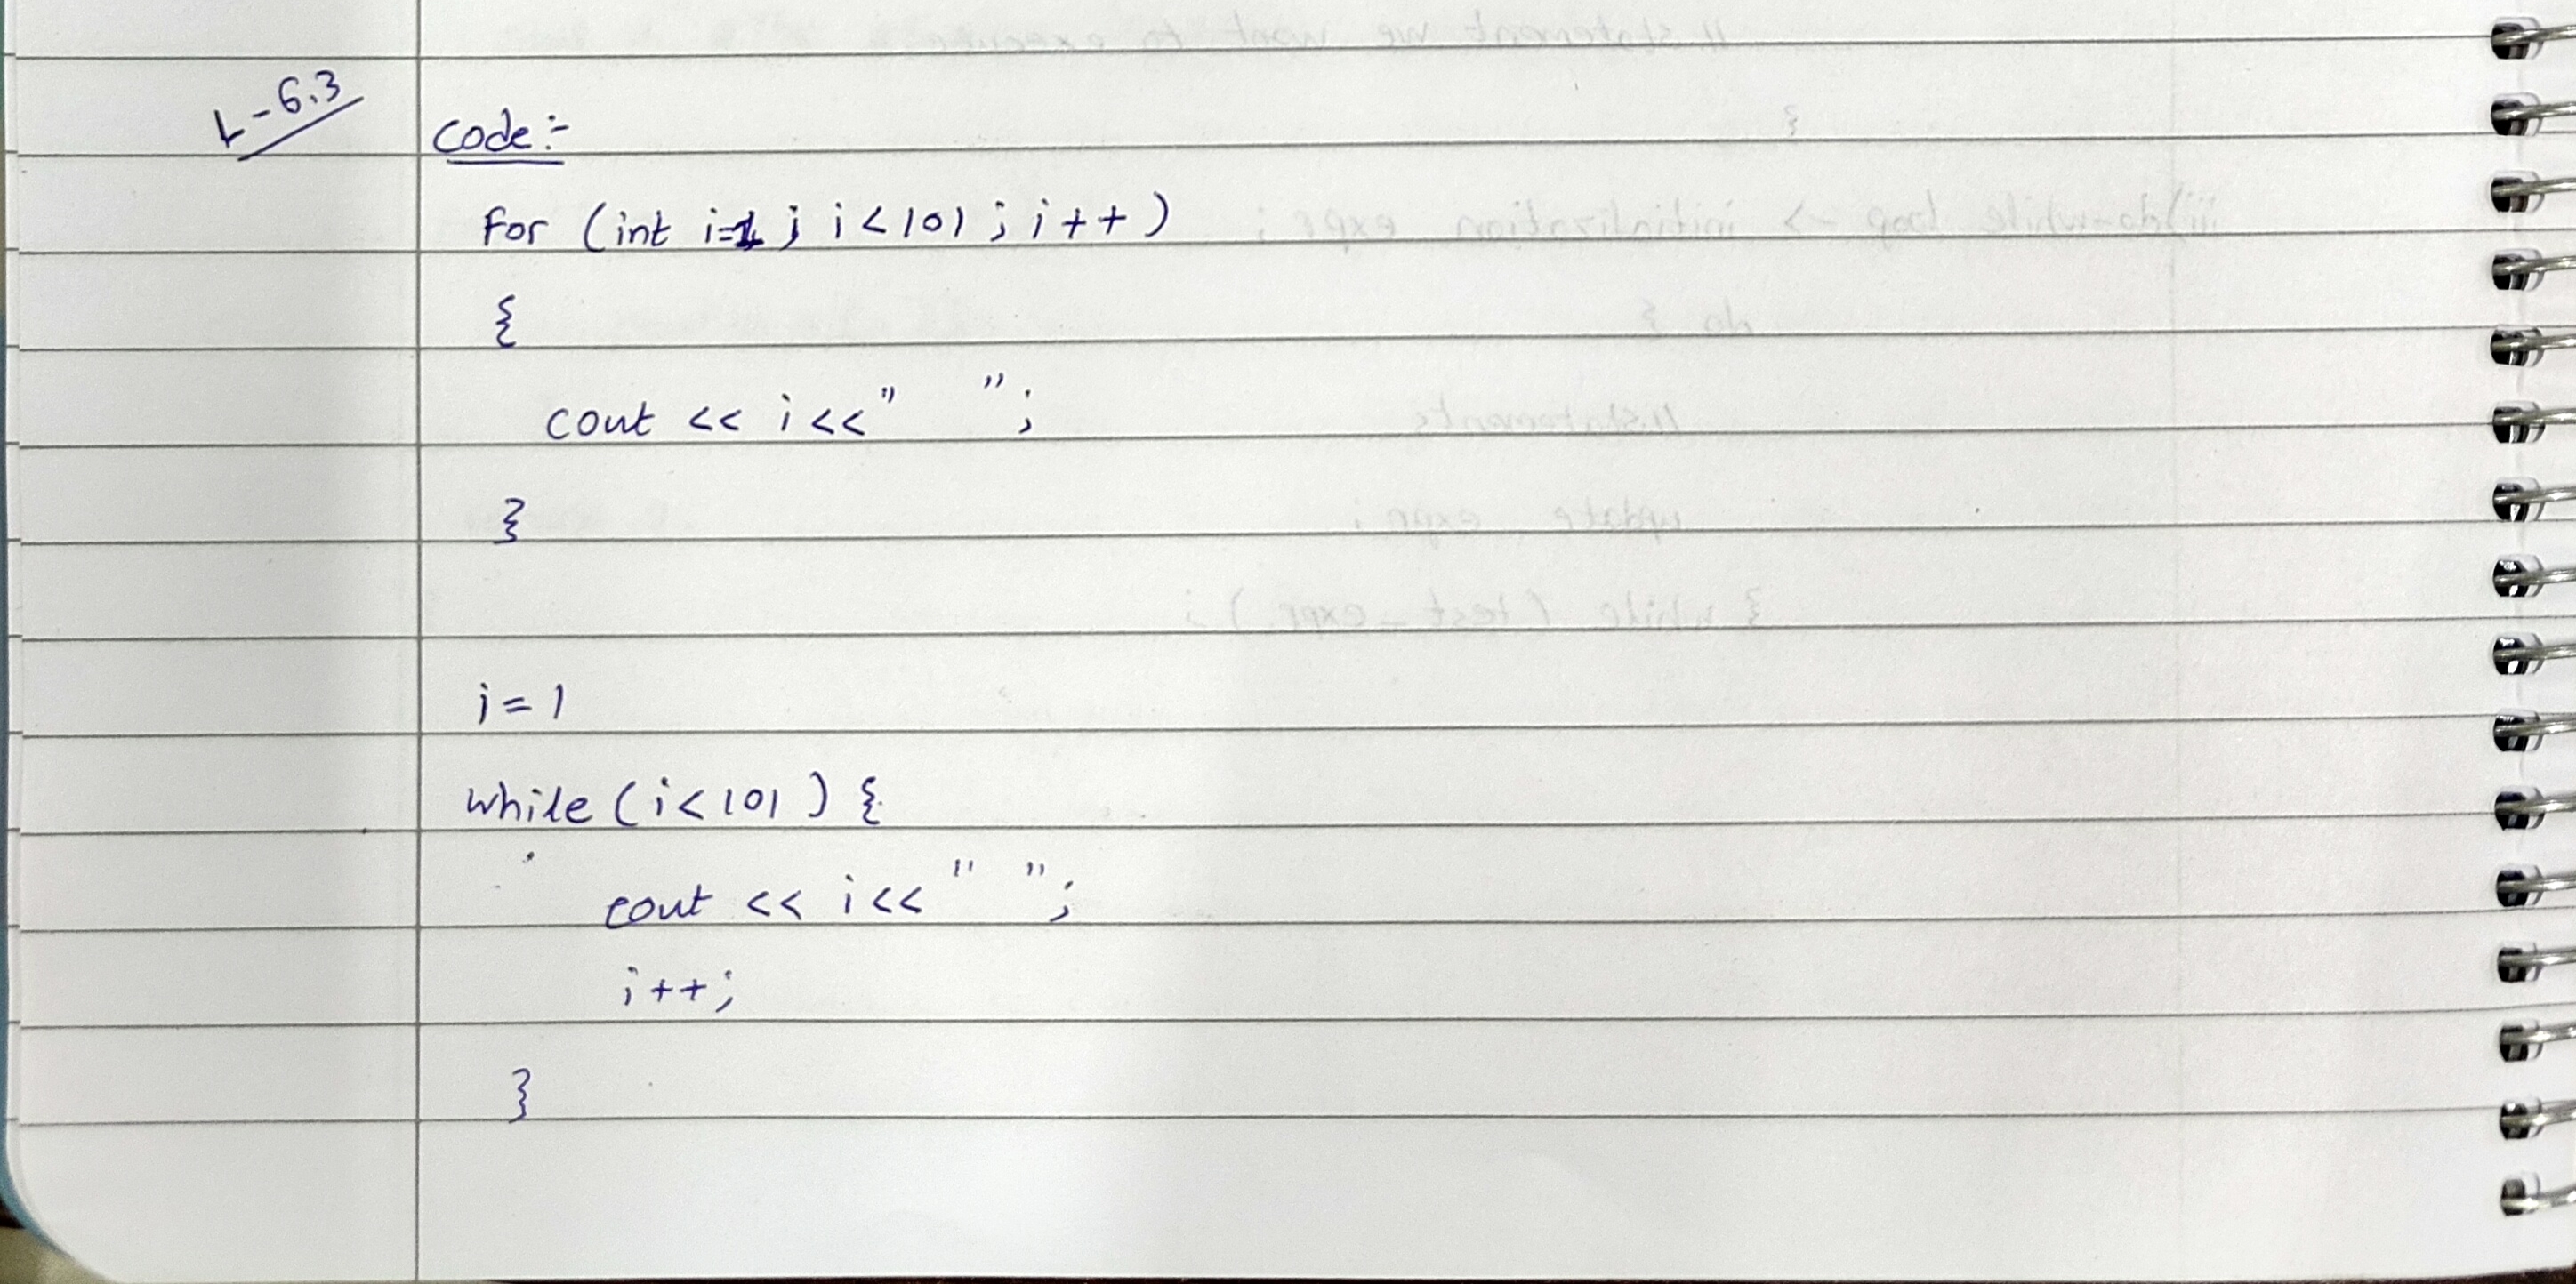 L-6.3
Code:-
For (int i=1; i<101; i++)
{
cout << i<<" ";
}
i=1
while (i<101) {
cout << i<<" ";
i++;
}